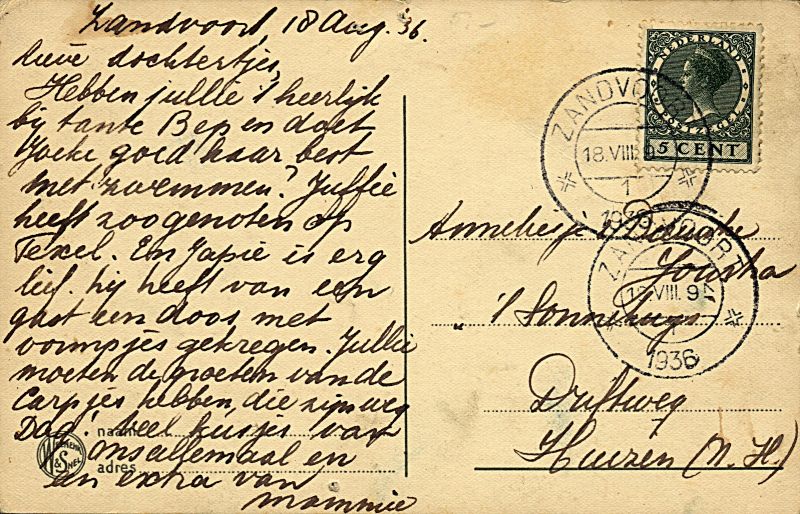 Zandvoort, 18 Aug. '36.
lieve dochtertjes,
Hebben jullie 't heerlijk
bij tante Bep en doet
Joeke goed haar best
met zwemmen? Jullie
heeft zoo genoten op
Texel. En Japie is erg
lief. hij heeft van een
gast een doos met
vormpjes gekregen. Jullie
moeten de groeten van de
Carpjes hebben, die zijn weg
Dag, veel kusjes van
ons allemaal en
en extra van
mammie
naam
adres
NEDERLAND
POSTZEGEL
5 CENT
ZANDVOORT
18.VIII. 9
1
1936
ZANDVOORT
VIII. 9
1
1936
Annebesje
Jouska
"'t Sonnehuys
Driftweg
Huizen (N. H.)